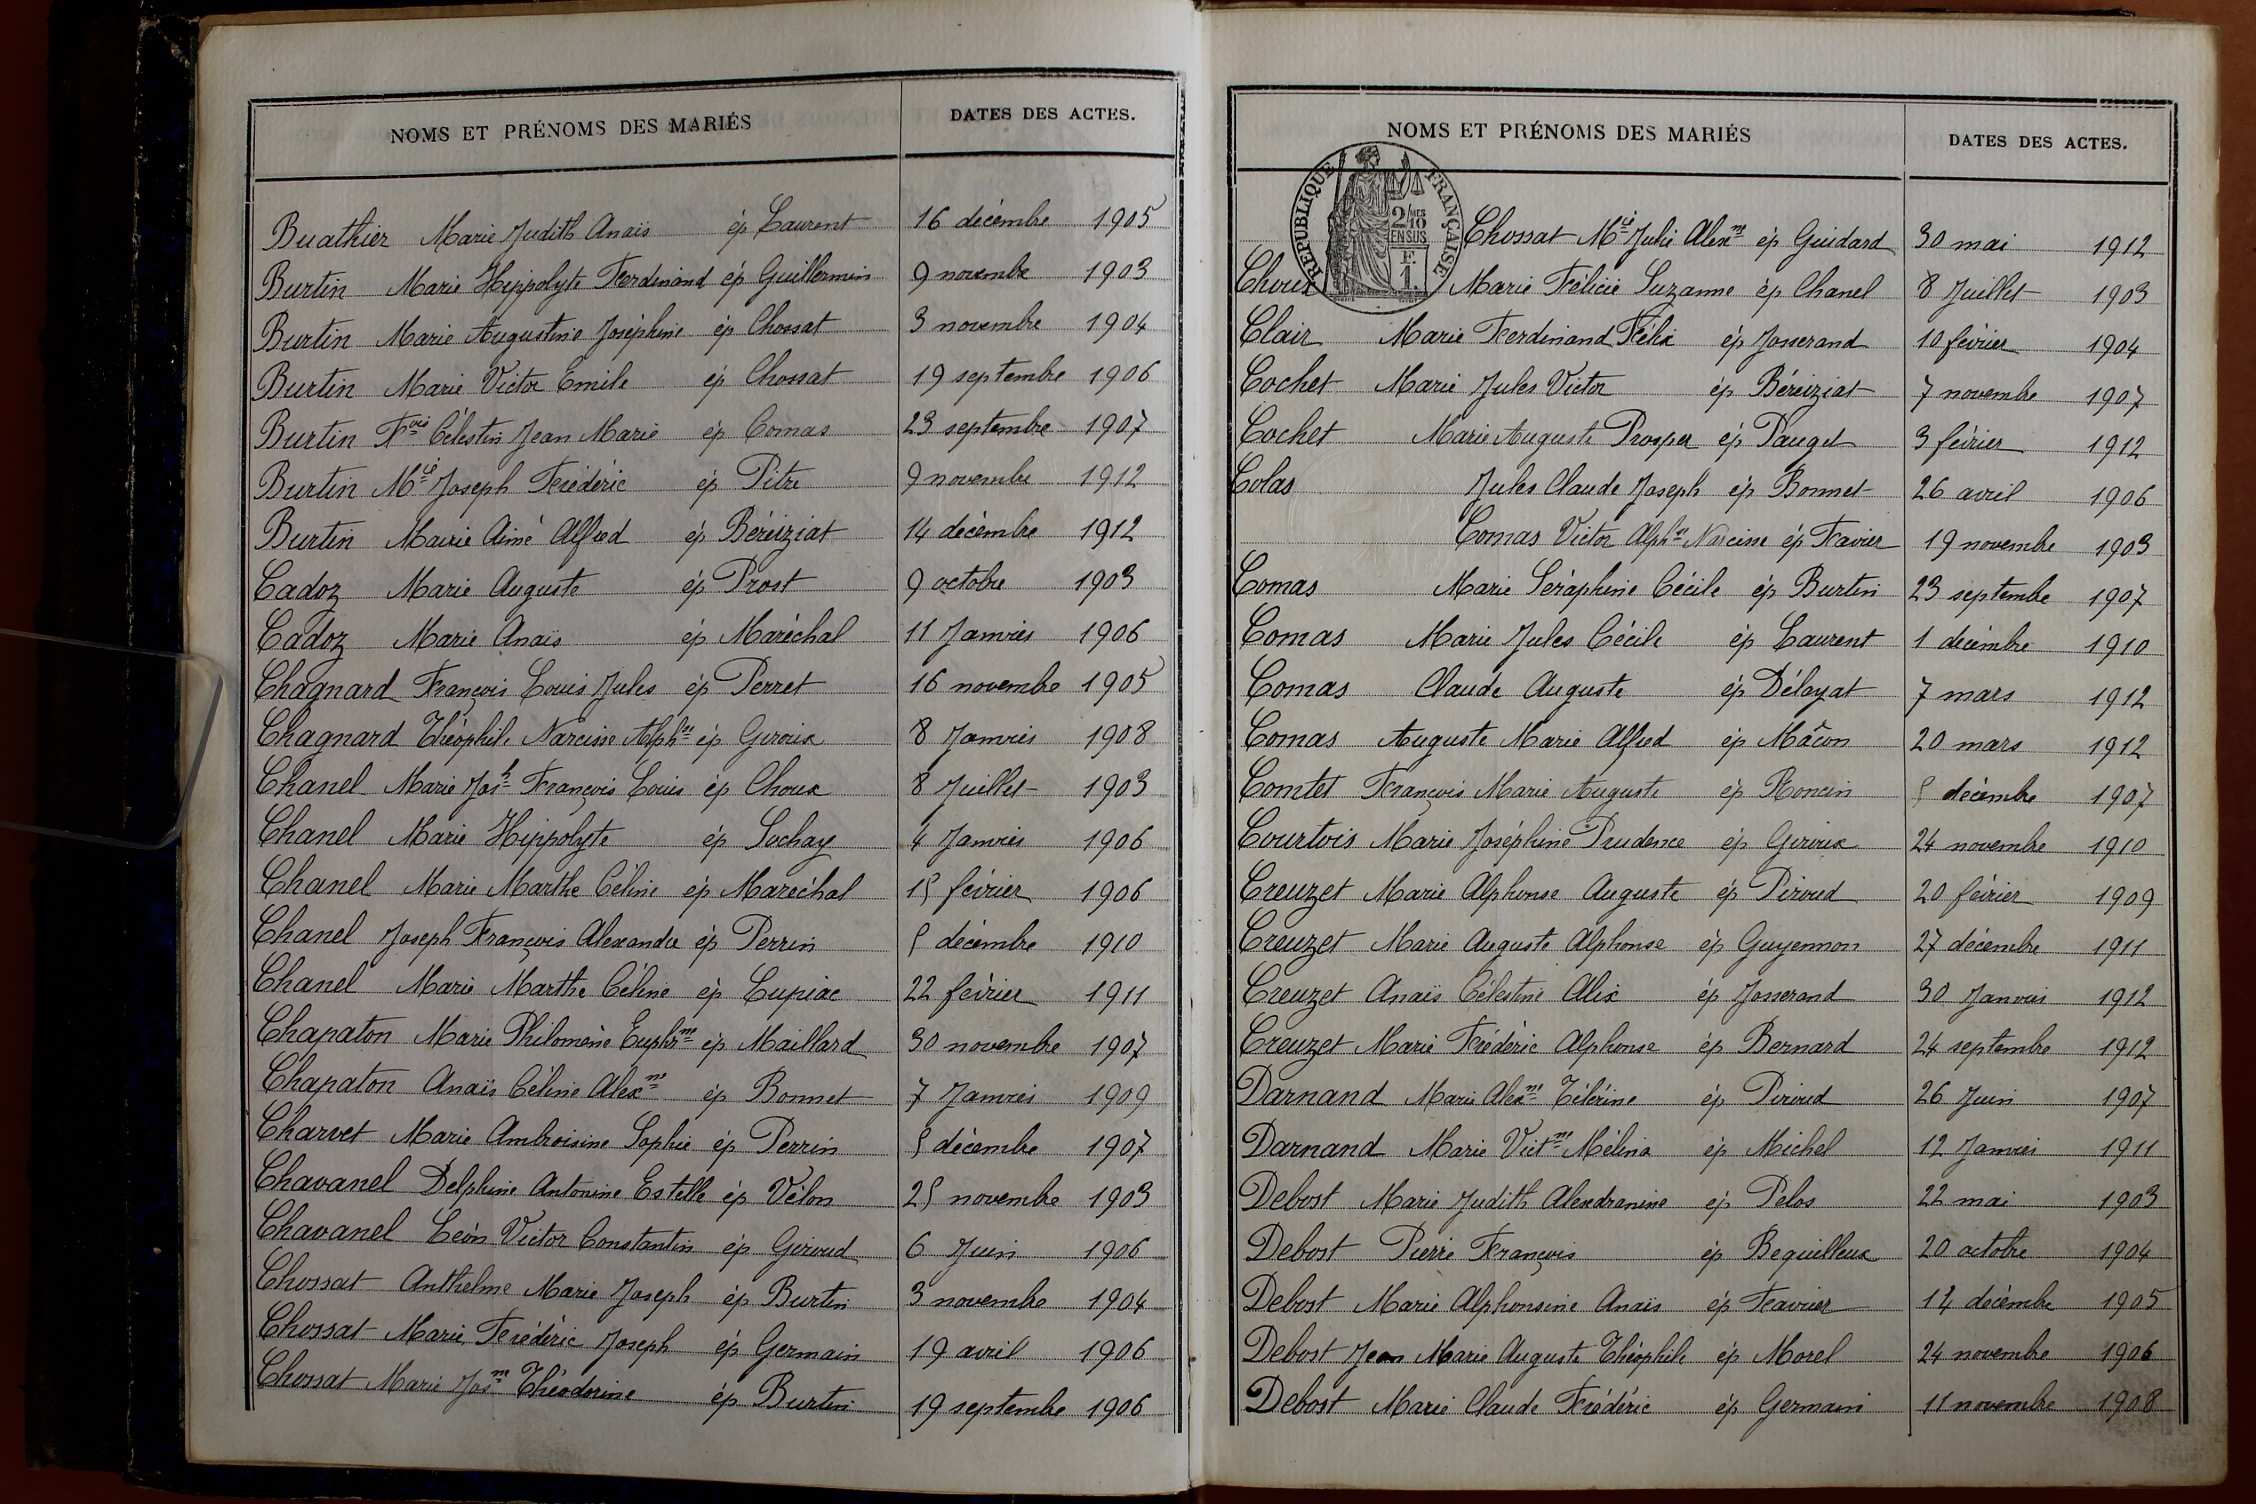 NOMS ET PRÉNOMS DES MARIÉS DATES DES ACTES.
Buathier Marie Judith Anaïs ép Laurent 16 décembre 1905
Burtin Marie Hippolyte Ferdinand ép Guillermin 9 novembre 1903
Burtin Marie Augustine Joséphine ép Chossat 3 novembre 1904
Burtin Marie Victor Emile ép Chossat 19 septembre 1906
Burtin Fois Célestin Jean Marie ép Comas 23 septembre 1907
Burtin Mie Joseph Frédéric ép Pitre 9 novembre 1912
Burtin Marie Aimé Alfred ép Béréiziat 14 décembre 1912
Cadoz Marie Auguste ép Prost 9 octobre 1903
Cadoz Marie Anaïs ép Maréchal 11 Janvier 1906
Chagnard François Louis Jules ép Perret 16 novembre 1905
Chagnard Théophile Narcisse Alphse ép Giroux 8 Janvier 1908
Chanel Marie Josh François Louis ép Choux 8 Juillet 1903
Chanel Marie Hippolyte ép Sochay 4 Janvier 1906
Chanel Marie Marthe Céline ép Maréchal 15 février 1906
Chanel Joseph François Alexandre ép Perrin 5 décembre 1910
Chanel Marie Marthe Céline ép Lupiac 22 février 1911
Chapaton Marie Philomène Euphne ép Maillard 30 novembre 1907
Chapaton Anaïs Céline Alexne ép Bonnet 7 Janvier 1909
Charvet Marie Ambroisine Sophie ép Perrin 5 décembre 1907
Chavanel Delphine Antonine Estelle ép Vélon 25 novembre 1903
Chavanel Léon Victor Constantin ép Giroud 6 Juin 1906
Chossat Anthelme Marie Joseph ép Burtin 3 novembre 1904
Chossat Marie Frédéric Joseph ép Germain 19 avril 1906
Chossat Marie Josne Théodorine ép Burtin 19 septembre 1906
NOMS ET PRÉNOMS DES MARIÉS DATES DES ACTES.
RÉPUBLIQUE FRANÇAISE
2/10MES
EN SUS
F.
1.
Chossat Mie Julie Alexne ép Guidard 30 mai 1912
Choux Marie Félicie Suzanne ép Chanel 8 Juillet 1903
Clair Marie Ferdinand Félix ép Josserand 10 février 1904
Cochet Marie Jules Victor ép Béréiziat 7 novembre 1907
Cochet Marie Auguste Prosper ép Pauget 3 février 1912
Colas Jules Claude Joseph ép Bonnet 26 avril 1906
Comas Victor Alphse Narcisse ép Favier 19 novembre 1903
Comas Marie Séraphine Cécile ép Burtin 23 septembre 1907
Comas Marie Jules Cécile ép Laurent 1 décembre 1910
Comas Claude Auguste ép Délayat 7 mars 1912
Comas Auguste Marie Alfred ép Mâcon 20 mars 1912
Comtet François Marie Auguste ép Roncin 5 décembre 1907
Courtois Marie Joséphine Prudence ép Giroux 24 novembre 1910
Creuzet Marie Alphonse Auguste ép Piroud 20 février 1909
Creuzet Marie Auguste Alphonse ép Guyennon 27 décembre 1911
Creuzet Anaïs Célestine Alix ép Josserand 30 Janvier 1912
Creuzet Marie Frédéric Alphonse ép Bernard 24 septembre 1912
Darnand Marie Alexne ép Piroud 26 Juin 1907
Darnand Marie Victne Mélina ép Michel 12 Janvier 1911
Debost Marie Judith Alexdranine ép Pelos 22 mai 1903
Debost Pierre François ép Beguilleux 20 octobre 1904
Debost Marie Alphonsine Anaïs ép Favier décembre 1905
Debost Jean Marie Auguste Théophile ép Morel 24 novembre 1906
Debost Marie Claude Frédéric ép Germain 11 novembre 1908